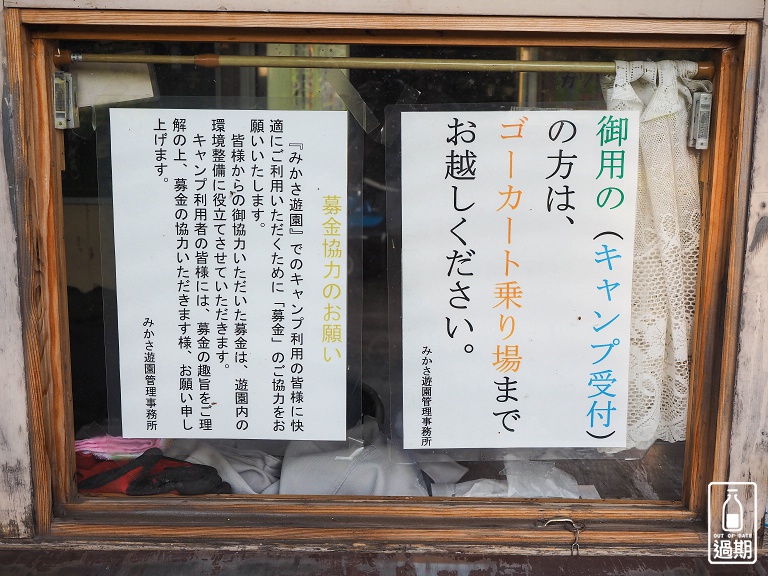 御用の(キャンプ受付)
の方は、
ゴーカート乗り場まで
お越しください。
みかさ遊園管理事務所
募金協力のお願い
『みかさ遊園』でのキャンプ利用の皆様に快
適にご利用いただくために「募金」のご協力をお
願いいたします。
皆様からの御協力いただいた募金は、遊園内の
環境整備に役立てさせていただきます。
キャンプ利用者の皆様には、募金の趣旨をご理
解の上、募金の協力いただきます様、お願い申し
上げます。
みかさ遊園管理事務所
OUT OF DATE
過期